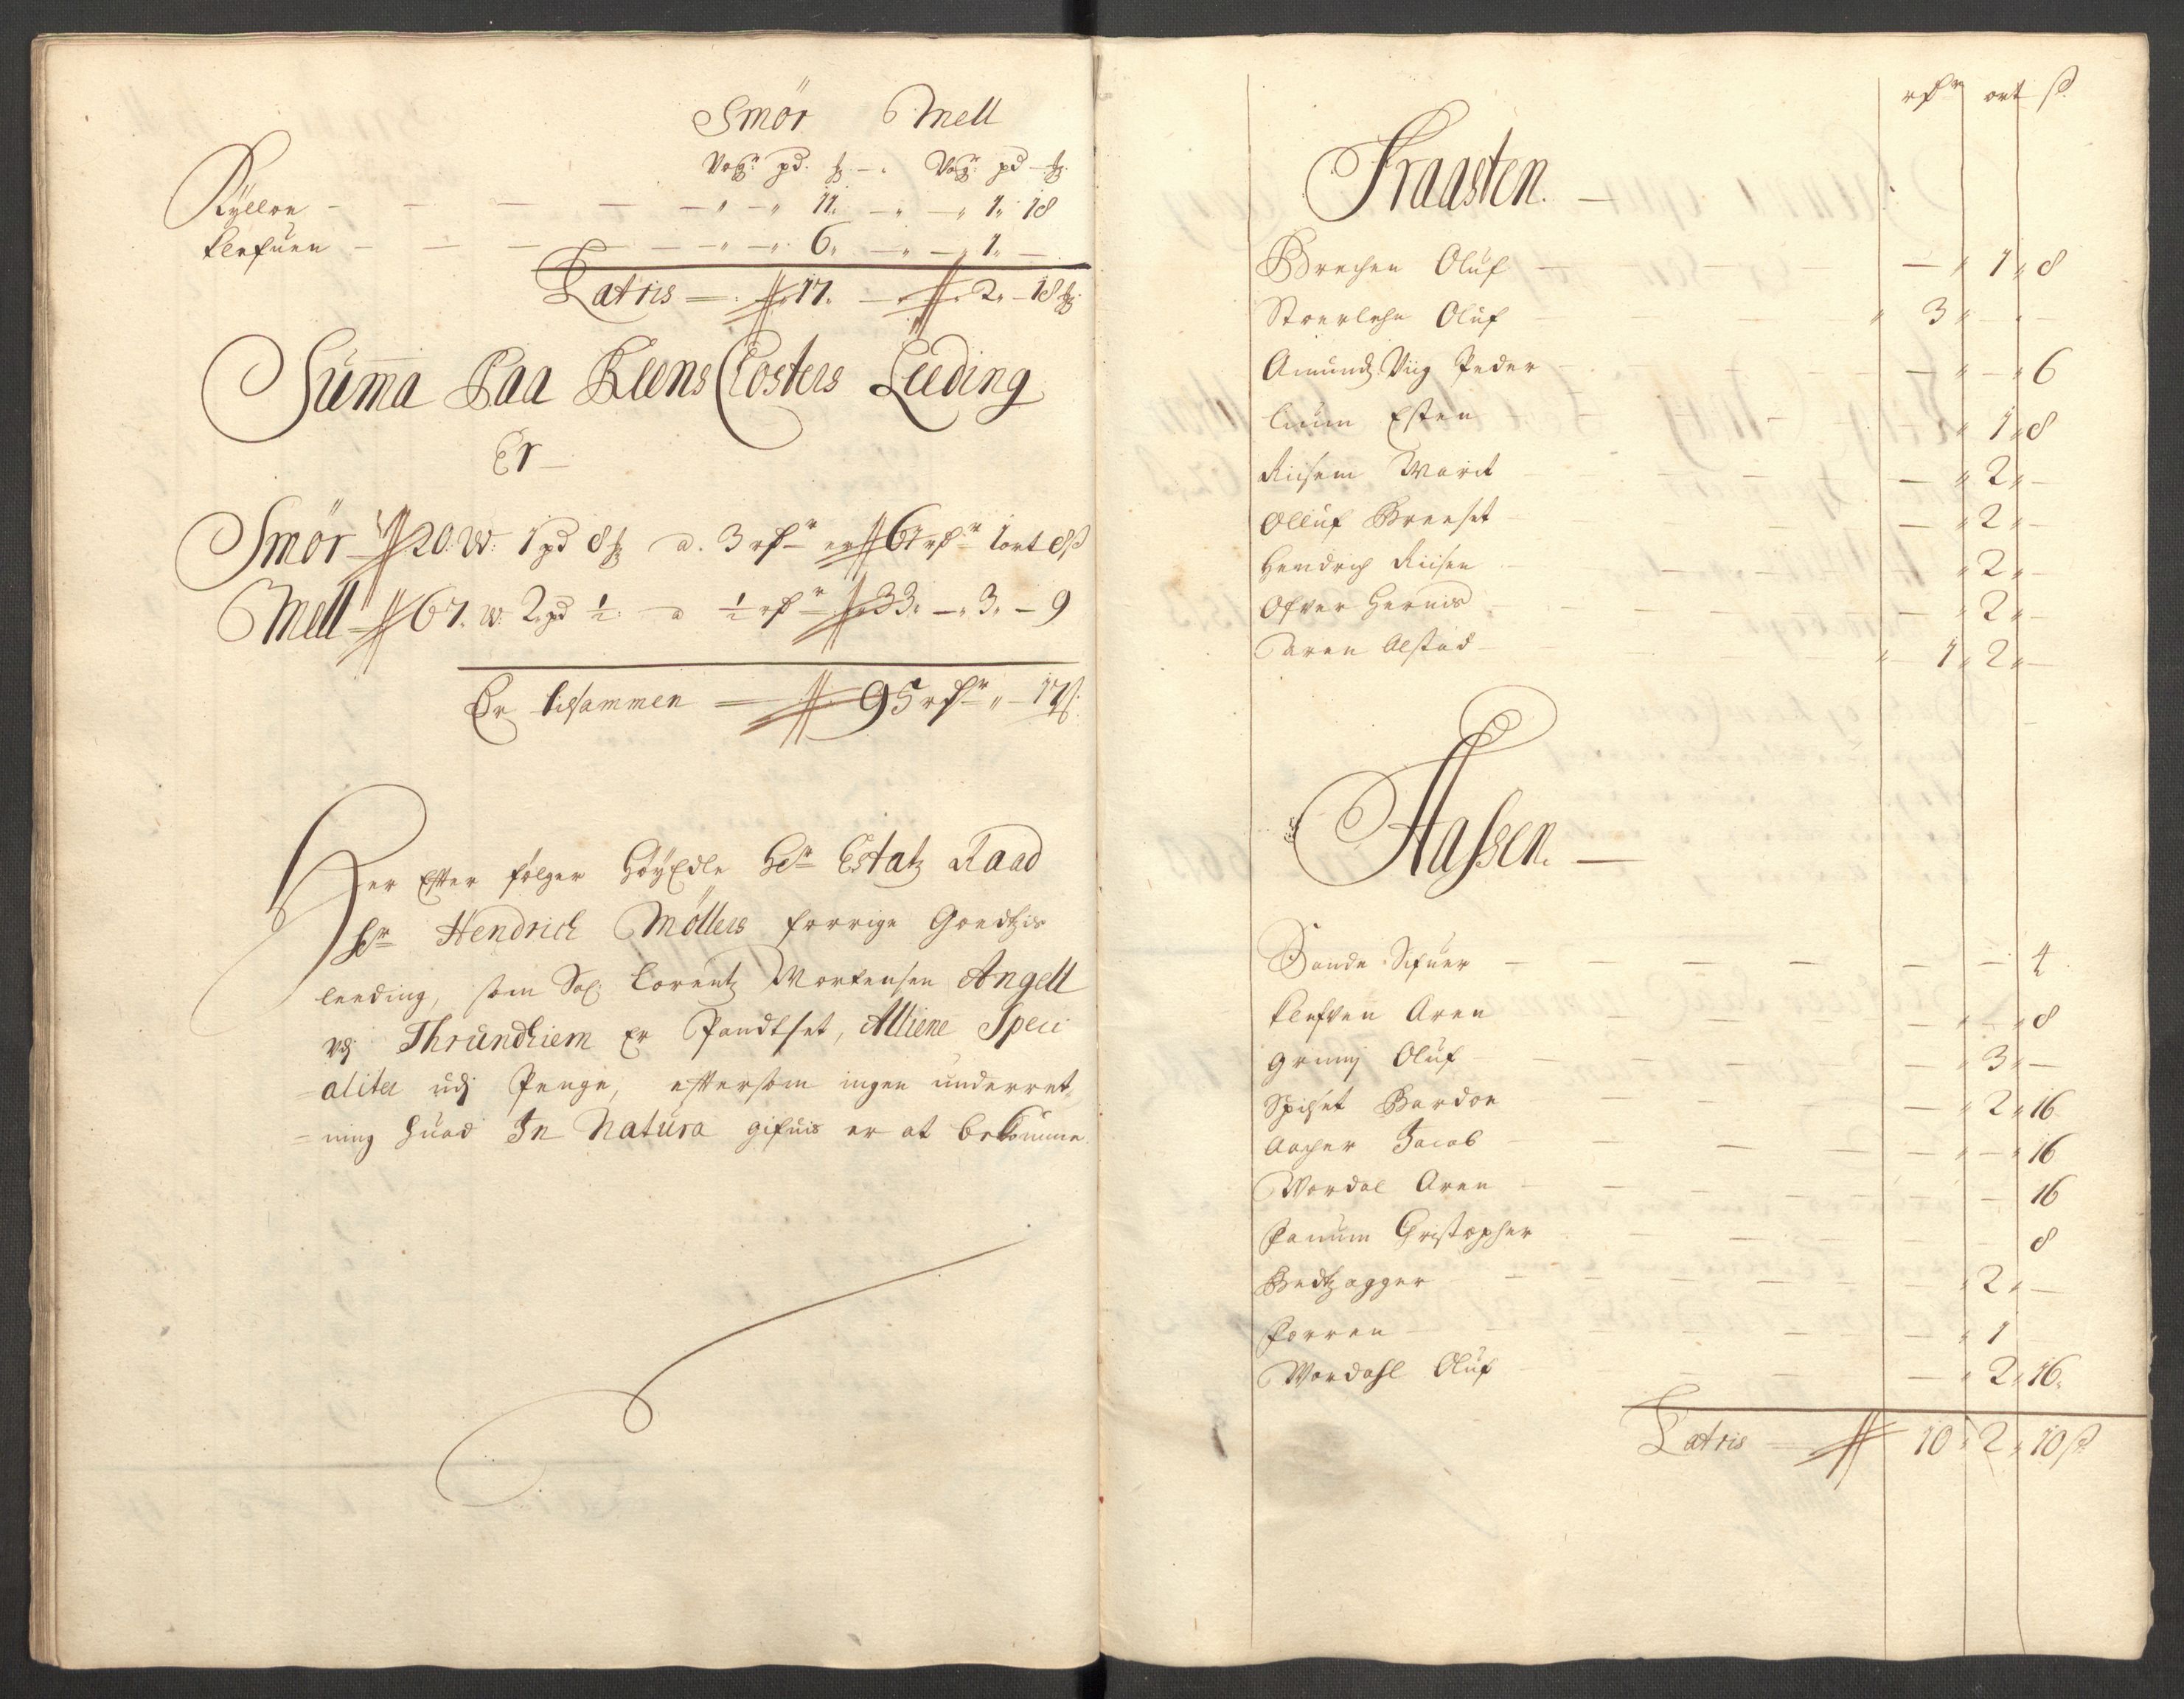 Smör Mell
Wog: pd. ℔ — Wog: pd — ℔
Kyllon — — — — „ — „ 11. — „ — „ 1. 18
Klefuen — — — — „ — „ 6. — „ — „ 1. —
Latris — 17. — 2. — 18 ℔
Summa Paa Reens Closters Leeding
Er
Smör 20. W: 1 pd 8 ℔ a. 3 rdr er 61 rdr 1 ort 8 β
Mell 67. W: 2 pd ½ a ½ rdr 33. — 3. — 9
Er tilsammen — 95 rdr „ — 17 β.
Her Efter følger HöyEdle Hr Estatz Raad
Hr Hendrich Möllers forrige Goedtzis
leeding, som Sal: Lorentz Mortensen Angell
udj Thrundhiem Er Pandtset, Alliene Speci
aliter udj Penge, eftersom ingen underret
ning huad In Natura gifuis er at bekomme.
rdr ort β
Fraasten. —
Brechen Oluf — „ 1 „ 8
Stoerlehn Oluf „ 3 „ — . —
Amunds Viig Peder — „ — „ 6
Lium Esten „ 1 „ 8
Riisem Marit — „ 2 „ —
Olluf Breeset — „ 2 „ —
Hendrich Riisen — „ 2 „ —
Ofver Hernis — „ 2 „ —
Aren Alstad „ 1 „ 2 „ —
Hassen. —
Sande Sifuer — 4
Klefven Aren — „ — „ 8
Grimj Oluf — „ 3 „ —
Spilset Bardon — „ 2 „ 16
Aacher Jacob — „ — „ 16
Mardal Aren — 16
Fanum Christopher 8
Bedtzagger „ 2 „ —
Forren — „ 1
Mardahl Oluf — „ 2 „ 16.
Latris — 10 „ 2 „ 10 β